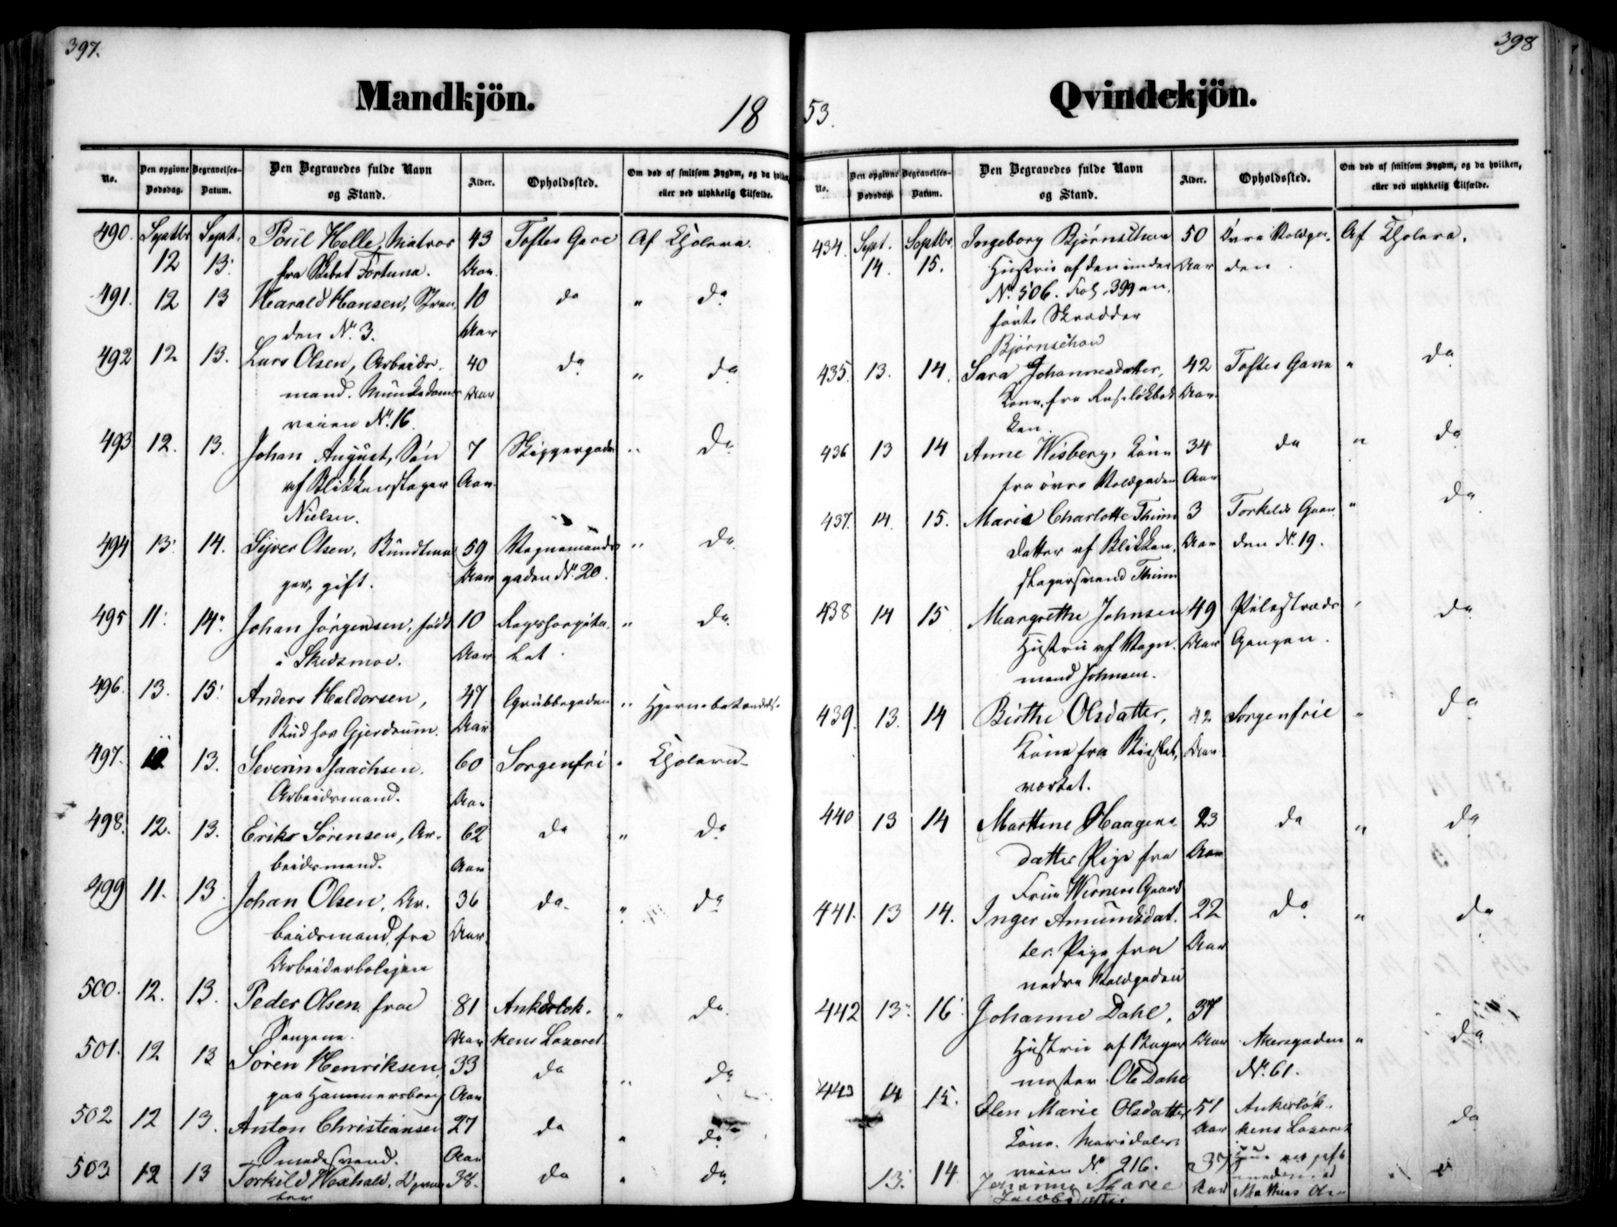 397.
Mandkjön.
18
No.
Den opgivne Dødsdag.
Begravelses-Datum.
Den Begravedes fulde Navn og Stand.
Alder.
Opholdssted.
Om død af smitsom Sygdm, og da hvilken, eller ved ulykkelig Tilfælde.
490. Septbr 12 Sept. 13. Poul Helle, Matros 43 Toftes Gave Af Cholera.
fra Skibet Fortuna. Aar.
491. 12 13 Harald Hansen, 10 do " do
den No 3. Aar
492 12 13. Lars Olsen, Arbeids- 40 do " do
mand. Munkedams Aar
veien No 16.
493 12. 13. Johan August, Søn 7 Skippergaden " do
af Blikkenslager Aar
Nielsen.
494 13. 14. Sejver Olsen, 59 Vognmands " do
gift. Aar gaden No 20.
495 11. 14. Johan Jørgensen, født 10 Rigshospita- " do
i Skedsmoe. Aar let.
496. 13. 15. Anders Haldorsen, 47 Grubbegaden " Hjernebetændelse
Gjerdrum. Aar
497. 13. Severin Isaachsen. 60 Sorgenfri " Cholera
Arbeidsmand. Aar
498. 12. 13. Eriks Sørensen, Ar- 62 do " do
beidsmand. Aar
499 11. 13 Johan Olsen, Ar- 36 do " do
beidsmand, fra Aar
Arbeiderboligen
500. 12. 13. Peder Olsen fra 81 Ankerløk- " do
Aar kens Lazaret
501. 12 13 Søren Henriksen, 33 do " do
paa Hammersborg Aar
502 12 13. Anton Christiansen 27 do " do
Smedesvend. Aar
503 12 13 Torkild 38. do " do
398
53.
Qvindekjön.
No.
Den opgivne Dødsdag.
Begravelses-Datum.
Den Begravedes fulde Navn og Stand.
Alder.
Opholdssted.
Om død af smitsom Sygdm, og da hvilken, eller ved ulykkelig Tilfælde.
434. Sept. 14. Septbr. 15. Ingeborg Bjørnethun 50 Øvre Voldga- Af Cholera.
Hustru af den under Aar den.
No 506. Fol. 399 an-
førte Skrædder
435. 13. 14. Sara Johannesdatter, 42 Toftes Gave " do
Kone, fra Ruseløkbak- Aar
ken.
436 13 14 Anne Wisberg, Kone 34 do " do
fra øvre Voldgaden Aar
437. 14. 15. Marie Charlotte Thim 3 Torkelds Gaar- " do
Datter af Blikken- Aar den No 19.
slagersvend Thim
438 14 15 Margrethe Johnsen 49 Pilestrædes " do
Hustru af Vogn- Aar Gangen.
mand Johnsen.
439. 13. 14 Birthe Olsdatter, 42 Sorgenfrie " do
Kone fra Aar
440 13 14 Marthine Haagens 23 do " do
datter Pige fra Aar
441. 13 14. Inger Amundsdat- 22 do " do
ter. Pige fra Aar
nedre Voldgaden
442 13. 16. Johanne Dahl, 37
Hustru af Bager Aar Akersgaden " do
mester Ole Dahl No. 61.
443 14 15. Elen Marie Olsdatter 51 Ankerløk- do
Kone. Maridals- Aar kens Lazaret
veien No 216.
13. 14 Johanne Marie 37
Jacobsdatter Aar